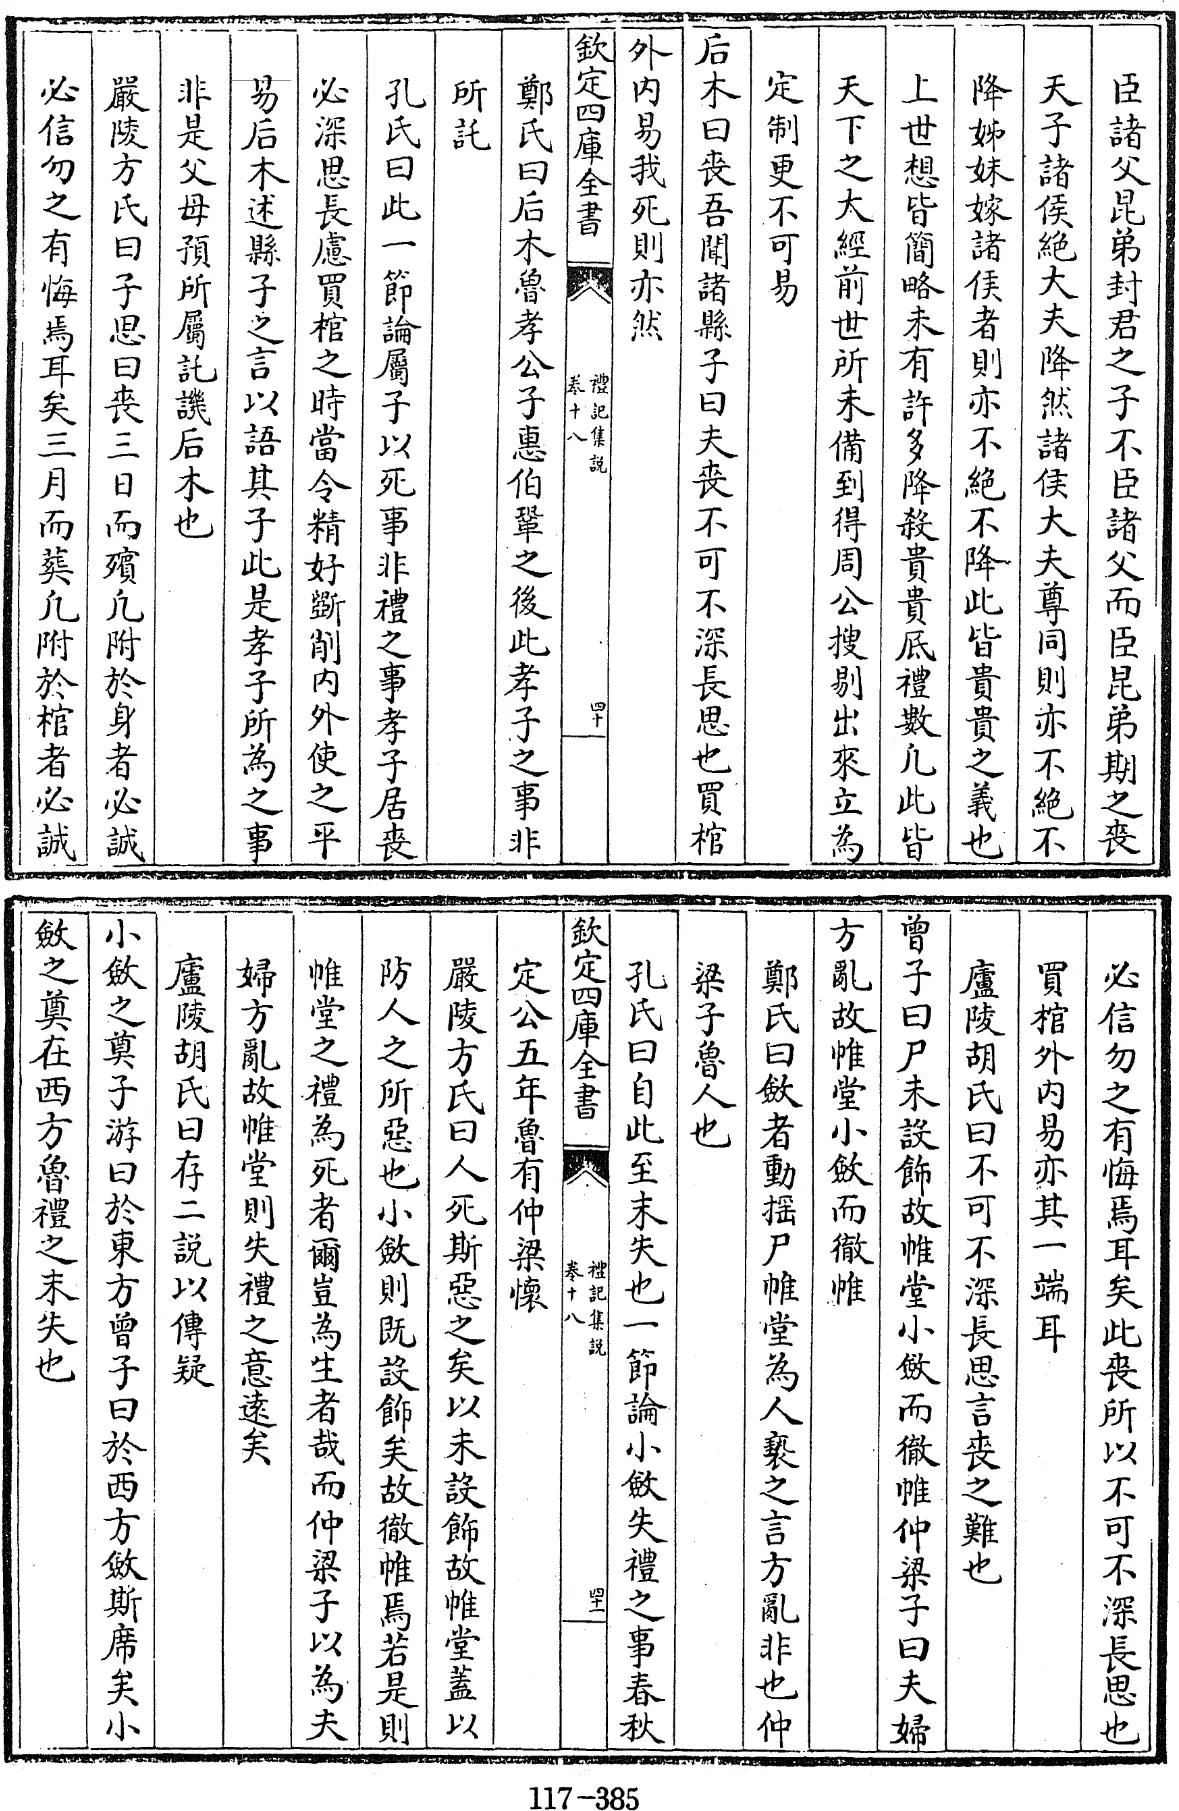 臣諸父昆弟封君之子不臣諸父而臣昆弟期之喪
天子諸侯絶大夫降然諸侯大夫尊同則亦不絶不
降姊妹嫁諸侯者則亦不絶不降此皆貴貴之義也
上世想皆簡略未有許多降殺貴貴底禮數凡此皆
天下之大經前世所未備到得周公搜剔出來立為
定制更不可易
后木曰喪吾聞諸縣子曰夫喪不可不深長思也買棺
外内易我死則亦然
欽定四庫全書
禮記集説
卷十八
四十
鄭氏曰后木魯孝公子惠伯鞏之後此孝子之事非
所託
孔氏曰此一節論屬子以死事非禮之事孝子居喪
必深思長慮買棺之時當令精好斵削内外使之平
易后木述縣子之言以語其子此是孝子所為之事
非是父母預所屬託譏后木也
嚴陵方氏曰子思曰喪三日而殯凡附於身者必誠
必信勿之有悔焉耳矣三月而葬凡附於棺者必誠
必信勿之有悔焉耳矣此喪所以不可不深長思也
買棺外内易亦其一端耳
廬陵胡氏曰不可不深長思言喪之難也
曾子曰尸未設飾故帷堂小斂而徹帷仲梁子曰夫婦
方亂故帷堂小斂而徹帷
鄭氏曰斂者動揺尸帷堂為人䙝之言方亂非也仲
梁子魯人也
孔氏曰自此至末失也一節論小斂失禮之事春秋
欽定四庫全書
禮記集説
卷十八
四十一
定公五年魯有仲梁懷
嚴陵方氏曰人死斯惡之矣以未設飾故帷堂蓋以
防人之所惡也小斂則既設飾矣故徹帷焉若是則
帷堂之禮為死者爾豈為生者哉而仲梁子以為夫
婦方亂故帷堂則失禮之意遠矣
廬陵胡氏曰存二説以傳疑
小斂之奠子游曰於東方曾子曰於西方斂斯席矣小
斂之奠在西方魯禮之末失也
117-385